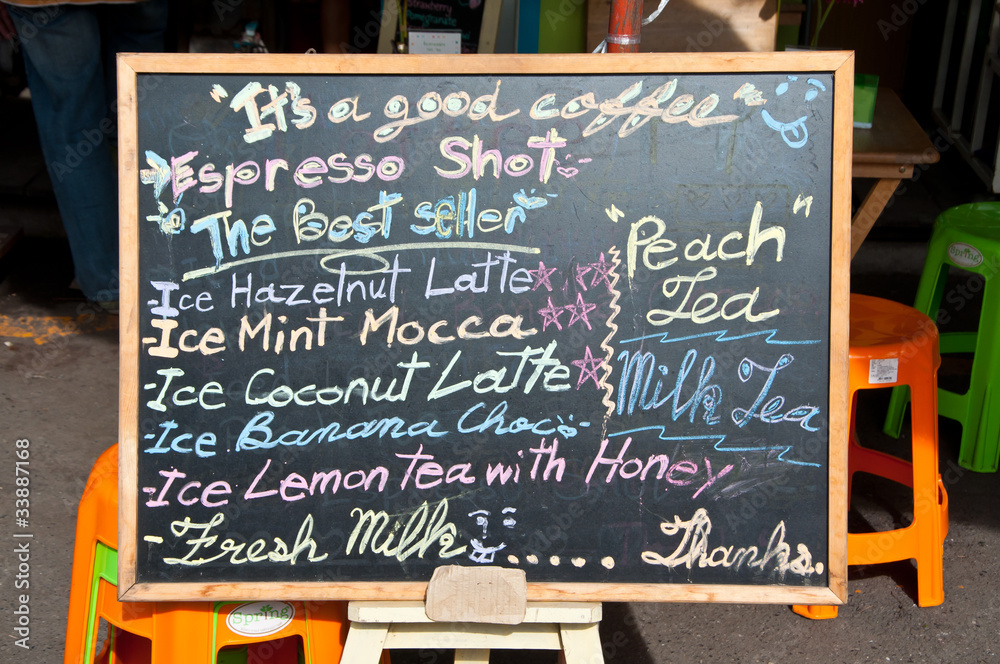 Strawberry
Pomegranate
"It's a good coffee"
Espresso Shot
The Best seller
Ice Hazelnut Latte
- Ice Mint Mocca
- Ice Coconut Latte
- Ice Banana Choc
- Ice Lemon Tea with Honey
- Fresh Milk ..... Thanks.
"Peach"
Tea
Milk Tea
Spring
Spring
Adobe Stock | #33887168